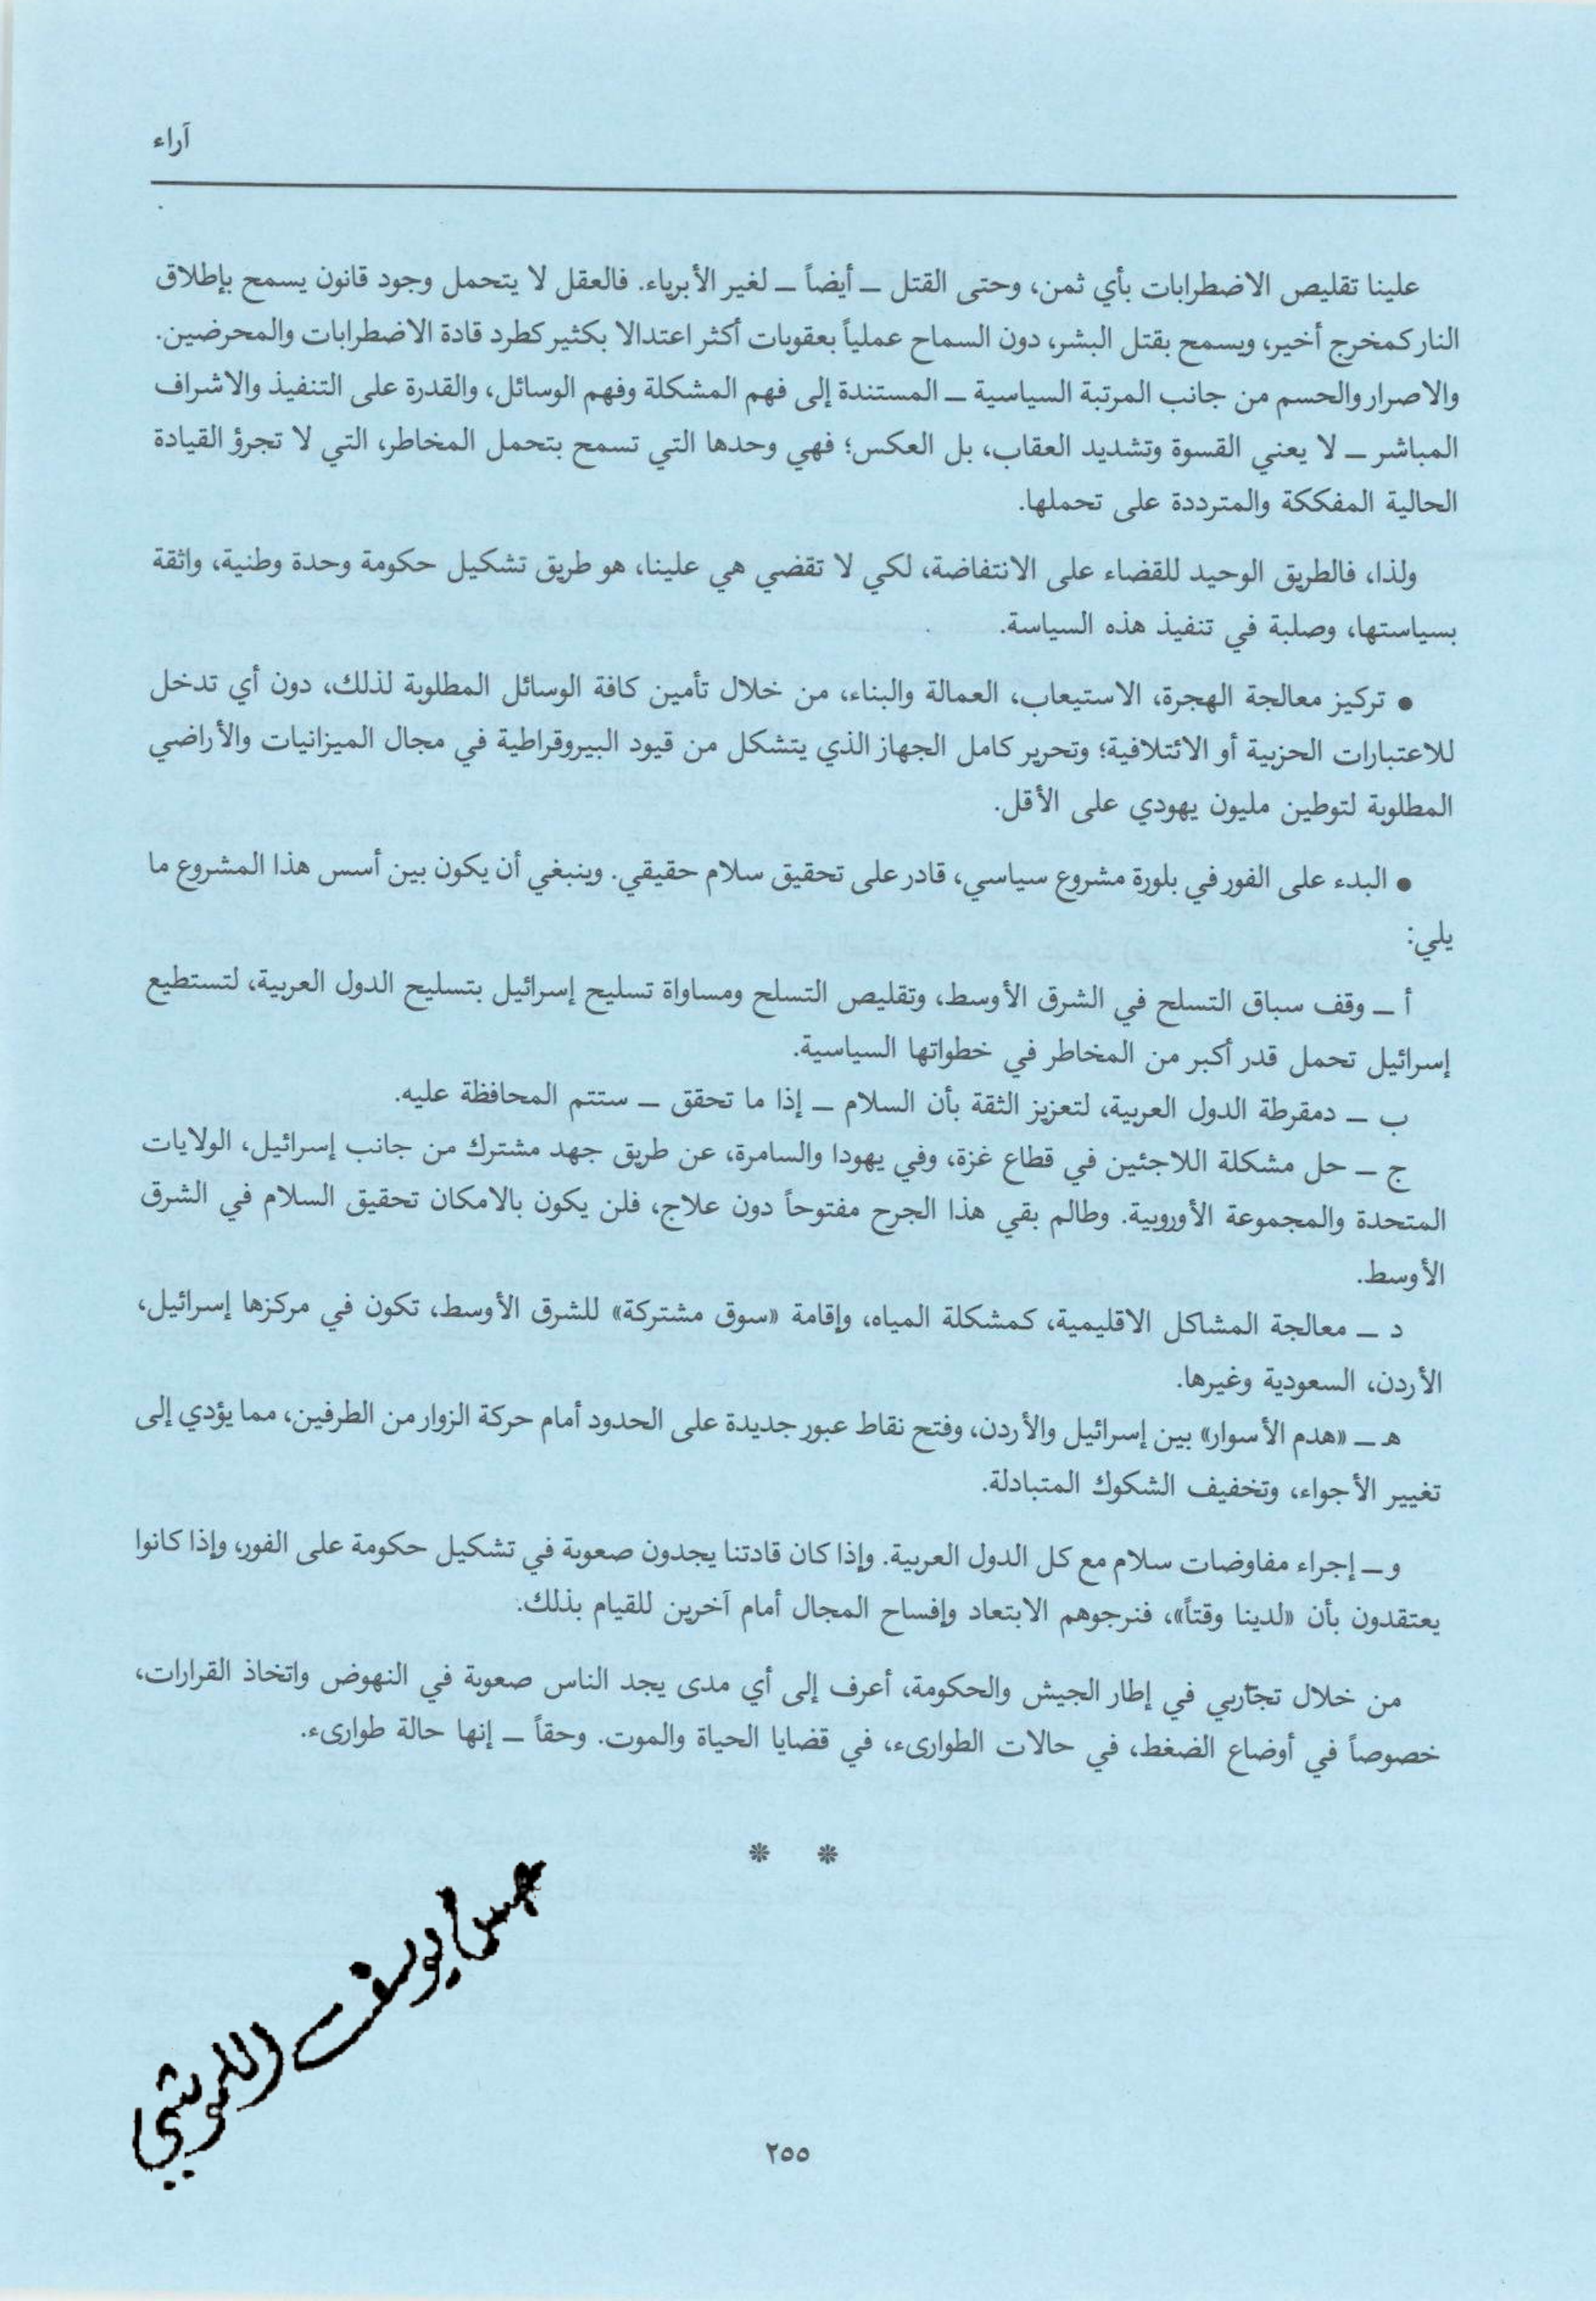 آراء
علينا تقليص الاضطرابات بأي ثمن، وحتى القتل ــ أيضاً ــ لغير الأبرياء. فالعقل لا يتحمل وجود قانون يسمح بإطلاق
النار كمخرج أخير، ويسمح بقتل البشر، دون السماح عملياً بعقوبات أكثر اعتدالا بكثير كطرد قادة الاضطرابات والمحرضين.
والاصرار والحسم من جانب المرتبة السياسية ــ المستندة إلى فهم المشكلة وفهم الوسائل، والقدرة على التنفيذ والاشراف
المباشر ــ لا يعني القسوة وتشديد العقاب، بل العكس؛ فهي وحدها التي تسمح بتحمل المخاطر، التي لا تجرؤ القيادة
الحالية المفككة والمترددة على تحملها.
ولذا، فالطريق الوحيد للقضاء على الانتفاضة، لكي لا تقضي هي علينا، هو طريق تشكيل حكومة وحدة وطنية، واثقة
بسياستها، وصلبة في تنفيذ هذه السياسة.
● تركيز معالجة الهجرة، الاستيعاب، العمالة والبناء، من خلال تأمين كافة الوسائل المطلوبة لذلك، دون أي تدخل
للاعتبارات الحزبية أو الائتلافية؛ وتحرير كامل الجهاز الذي يتشكل من قيود البيروقراطية في مجال الميزانيات والأراضي
المطلوبة لتوطين مليون يهودي على الأقل.
● البدء على الفور في بلورة مشروع سياسي، قادر على تحقيق سلام حقيقي. وينبغي أن يكون بين أسس هذا المشروع ما
يلي:
أ ــ وقف سباق التسلح في الشرق الأوسط، وتقليص التسلح ومساواة تسليح إسرائيل بتسليح الدول العربية، لتستطيع
إسرائيل تحمل قدر أكبر من المخاطر في خطواتها السياسية.
ب ــ دمقرطة الدول العربية، لتعزيز الثقة بأن السلام ــ إذا ما تحقق ــ ستتم المحافظة عليه.
ج ــ حل مشكلة اللاجئين في قطاع غزة، وفي يهودا والسامرة، عن طريق جهد مشترك من جانب إسرائيل، الولايات
المتحدة والمجموعة الأوروبية. وطالم بقي هذا الجرح مفتوحاً دون علاج، فلن يكون بالامكان تحقيق السلام في الشرق
الأوسط.
د ــ معالجة المشاكل الاقليمية، كمشكلة المياه، وإقامة «سوق مشتركة» للشرق الأوسط، تكون في مركزها إسرائيل،
الأردن، السعودية وغيرها.
هـ ــ «هدم الأسوار» بين إسرائيل والأردن، وفتح نقاط عبور جديدة على الحدود أمام حركة الزوار من الطرفين، مما يؤدي إلى
تغيير الأجواء، وتخفيف الشكوك المتبادلة.
و ــ إجراء مفاوضات سلام مع كل الدول العربية. وإذا كان قادتنا يجدون صعوبة في تشكيل حكومة على الفور، وإذا كانوا
يعتقدون بأن «لدينا وقتاً»، فنرجوهم الابتعاد وإفساح المجال أمام آخرين للقيام بذلك.
من خلال تجاربي في إطار الجيش والحكومة، أعرف إلى أي مدى يجد الناس صعوبة في النهوض واتخاذ القرارات،
خصوصاً في أوضاع الضغط، في حالات الطوارىء، في قضايا الحياة والموت. وحقاً ــ إنها حالة طوارىء.
* *
حسن يوسف اللموشي
٢٥٥